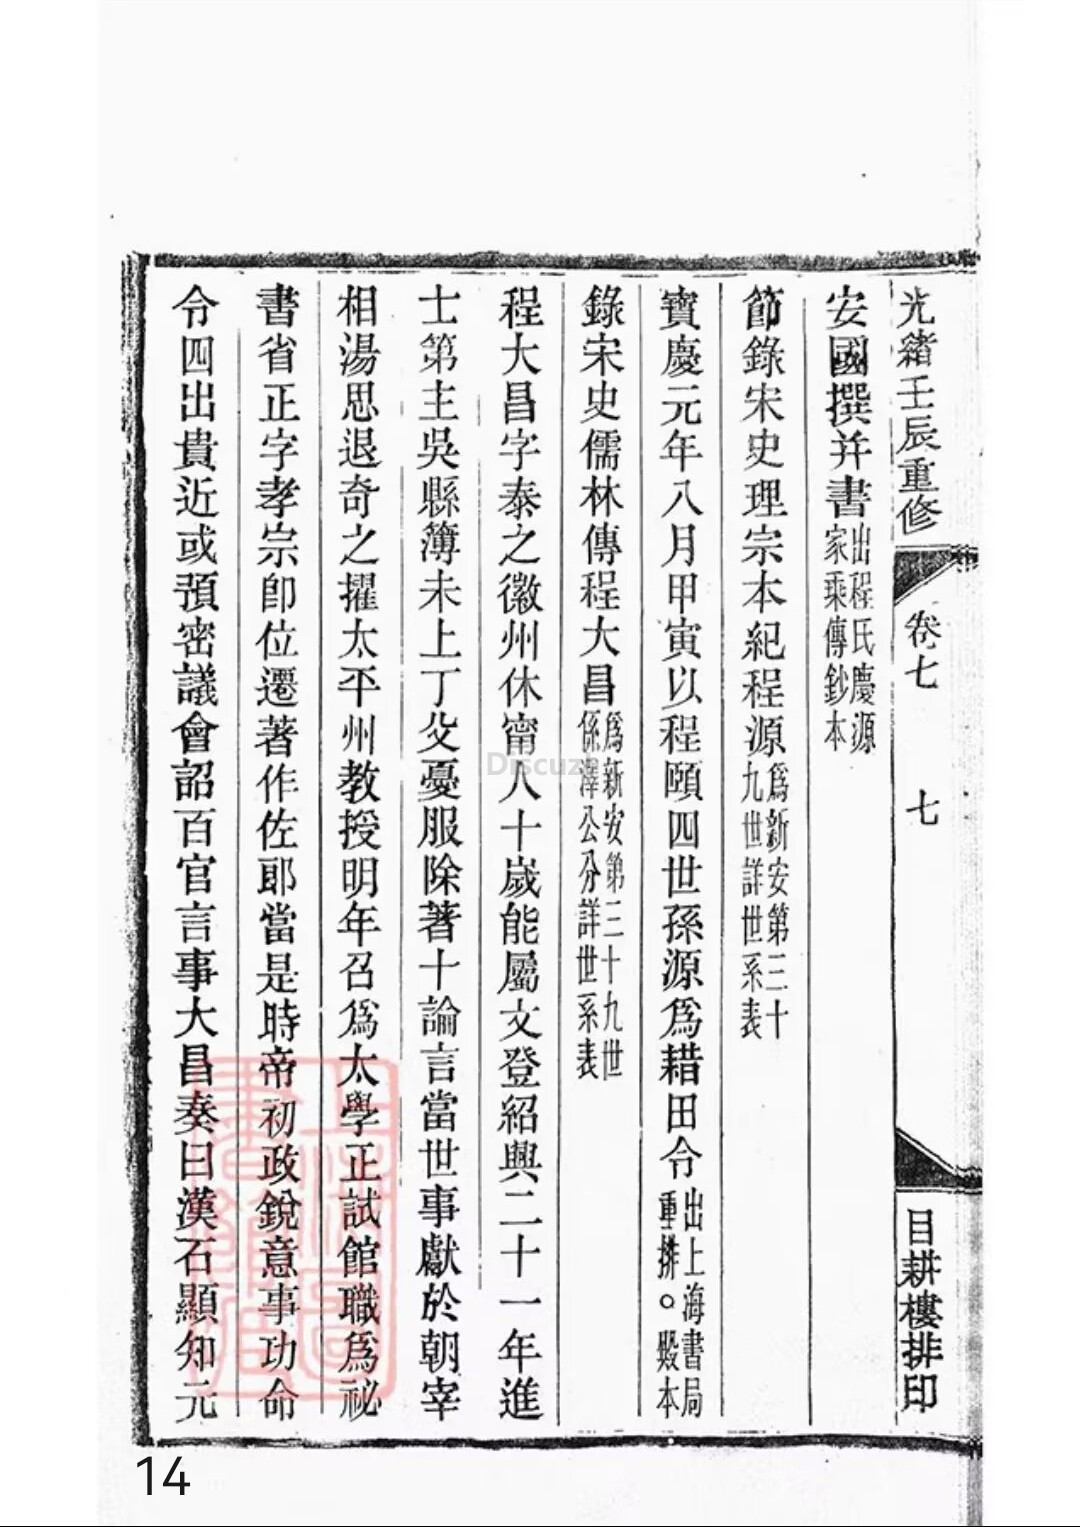 光緒壬辰重修
卷七
七
目耕樓排印
安國撰并書出程氏慶源
家乘傳鈔本
節錄宋史理宗本紀程源為新安第三十
九世詳世系表
寶慶元年八月甲寅以程頤四世孫源為耤田令出上海書局
重排。殿本
錄宋史儒林傳程大昌為新安第三十九世
係澤公分詳世系表
程大昌字泰之徽州休甯人十歲能屬文登紹興二十一年進
士第主吳縣簿未上丁父憂服除著十論言當世事獻於朝宰
相湯思退奇之擢太平州教授明年召為太學正試館職為祕
書省正字孝宗即位遷著作佐郎當是時帝初政銳意事功命
令四出貴近或預密議會詔百官言事大昌奏曰漢石顯知元
Discuz
14